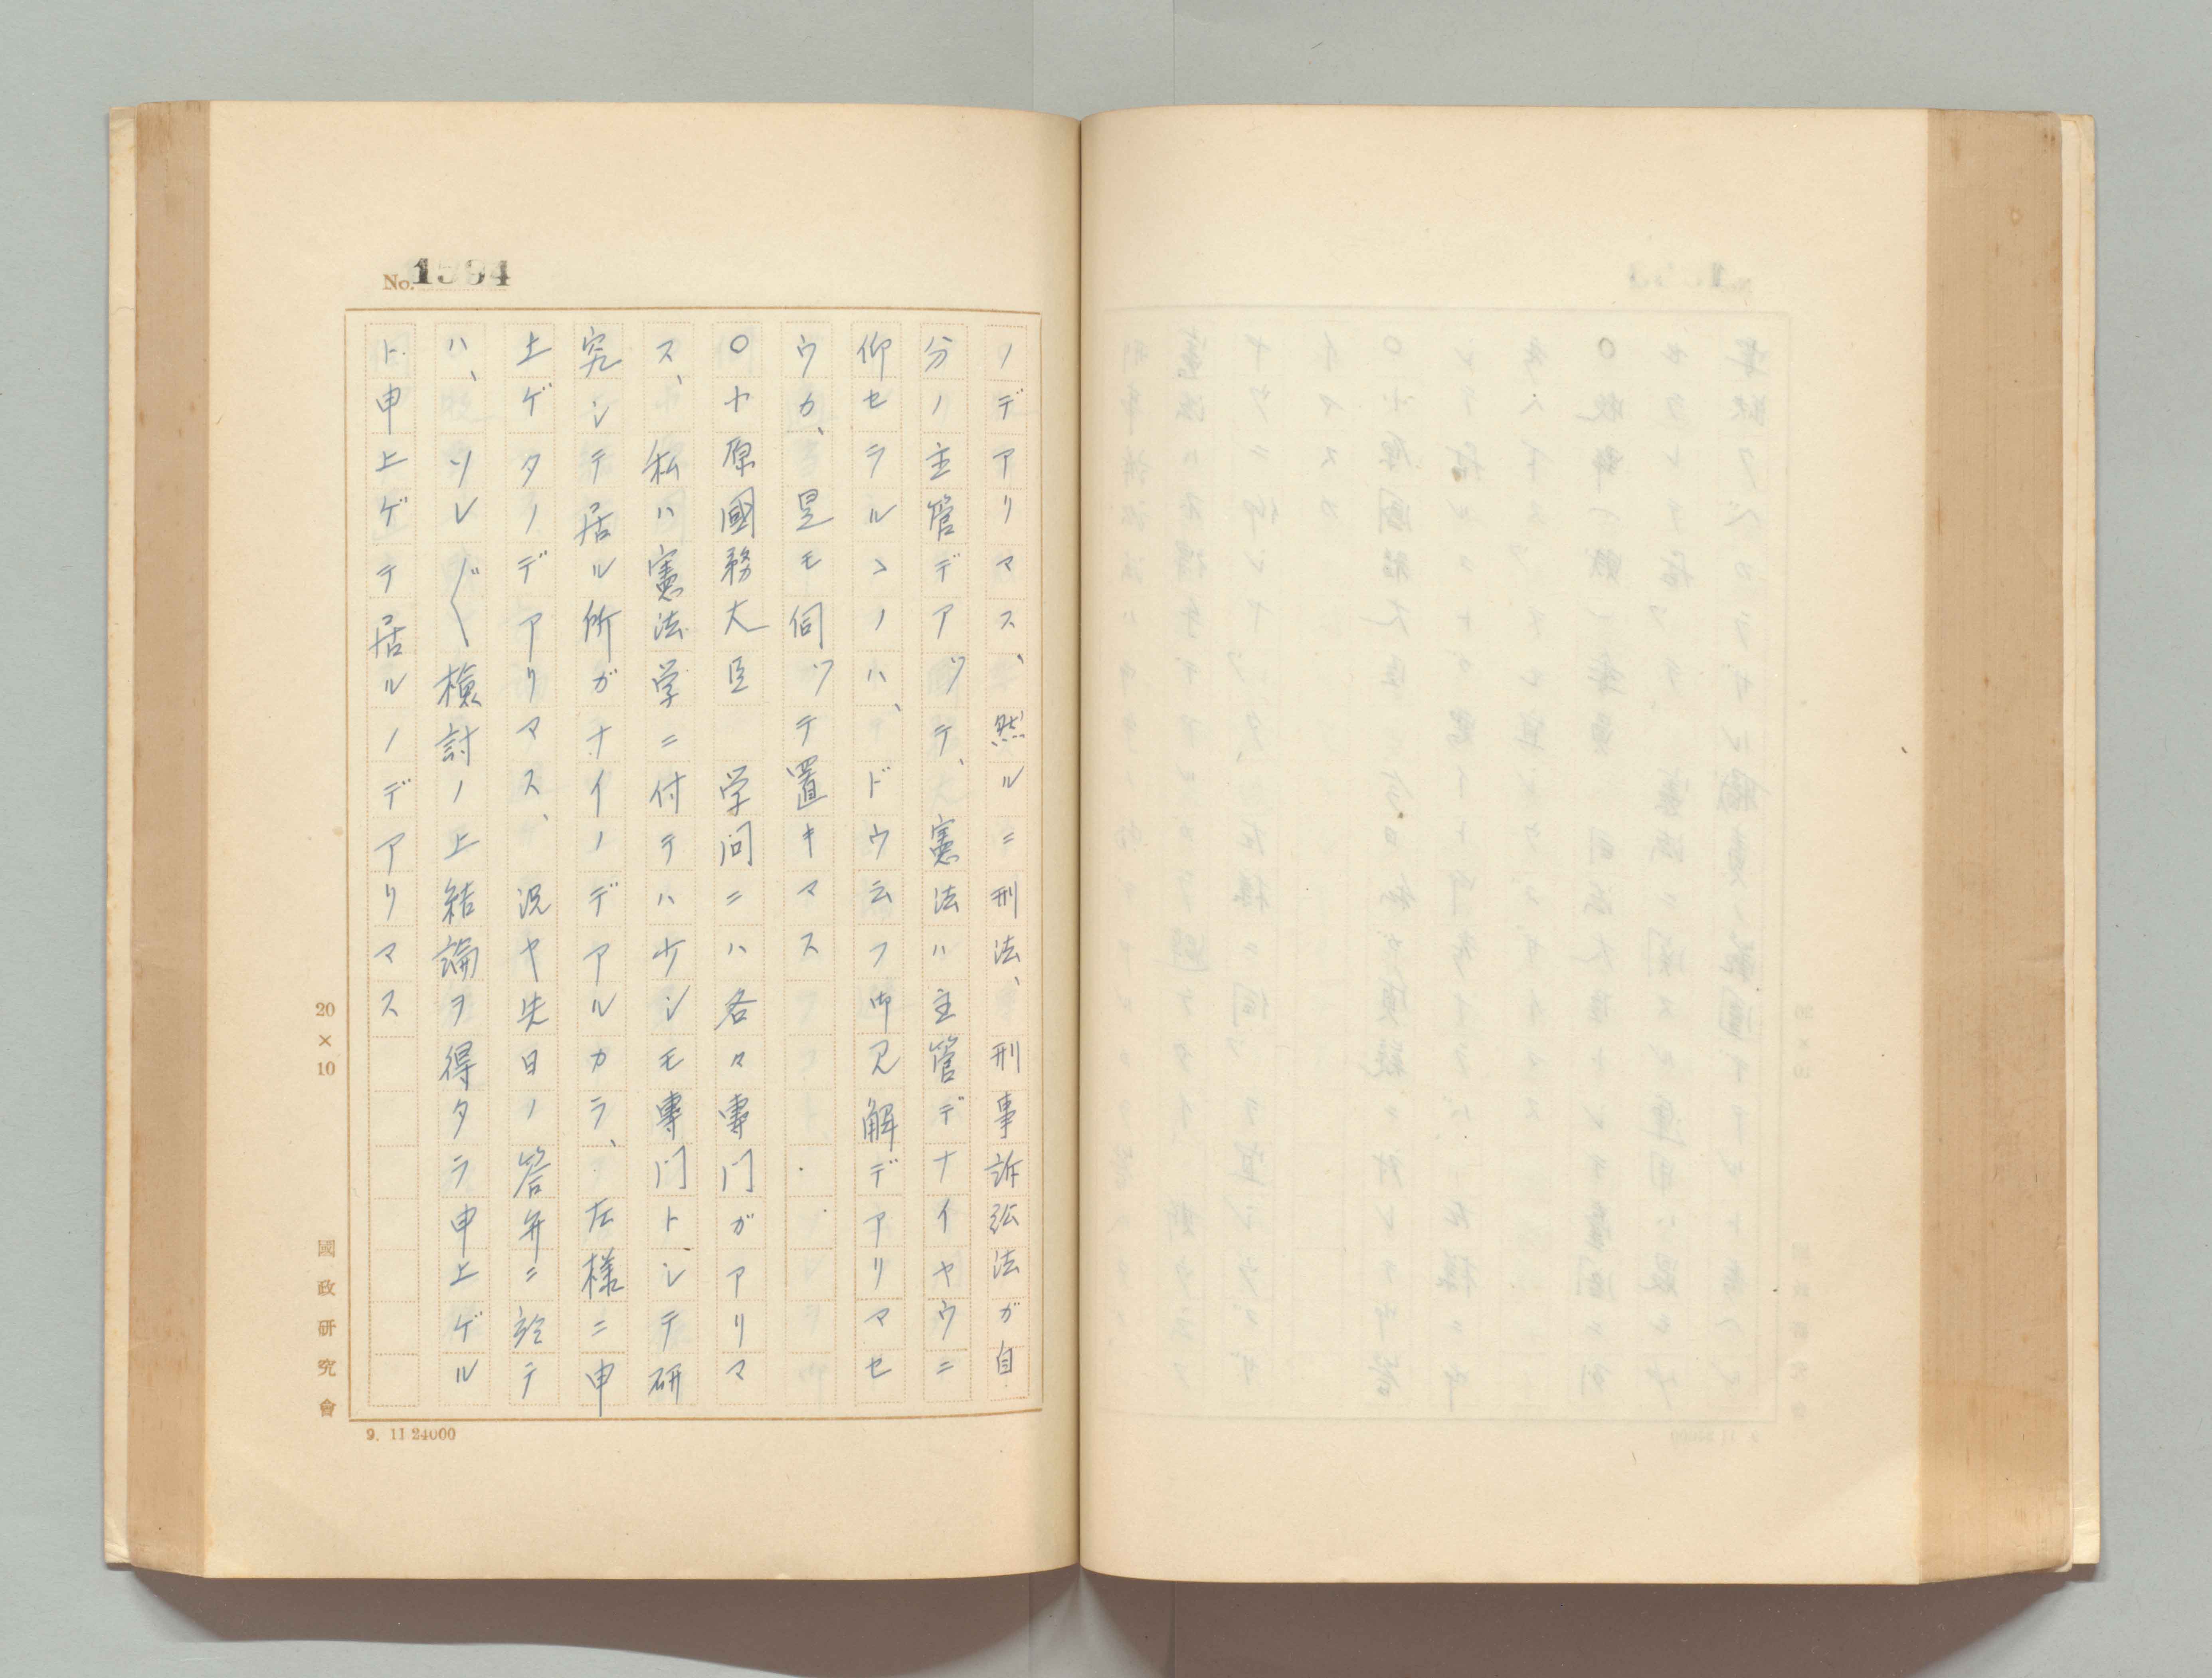 No. 1594
ノデアリマス、然ルニ刑法、刑事訴訟法ガ自
分ノ主管デアツテ、憲法ハ主管デナイヤウニ
仰セラルヽノハ、ドウ云フ御見解デアリマセ
ウカ、是モ伺ツテ置キマス
○小原國務大臣 学問ニハ各々專門ガアリマ
ス、私ハ憲法学ニ付テハ少シモ專門トシテ研
究シテ居ル所ガナイノデアルカラ、左様ニ申
上ゲタノデアリマス、況ヤ先日ノ答弁ニ於テ
ハ、ソレ〴〵檢討ノ上結論ヲ得タラ申上ゲル
ト申上ゲテ居ルノデアリマス
20×10
國政研究會
9. 11 24000